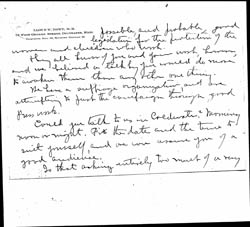 possible, and probable, good
legislation for the protection of the
women and children who work.
They all know of you and your work, however,
and we believe a talk by you would do more
to awaken them than any other one thing.
We have a suffrage organization and are
attempting to push the campaign through good
press work.
Could you talk to us in Coldwater, Monday
noon or night. Fix the date and the time to
suit yourself, and we can assure you of a
good audience.
Is that asking entirely too much of a very